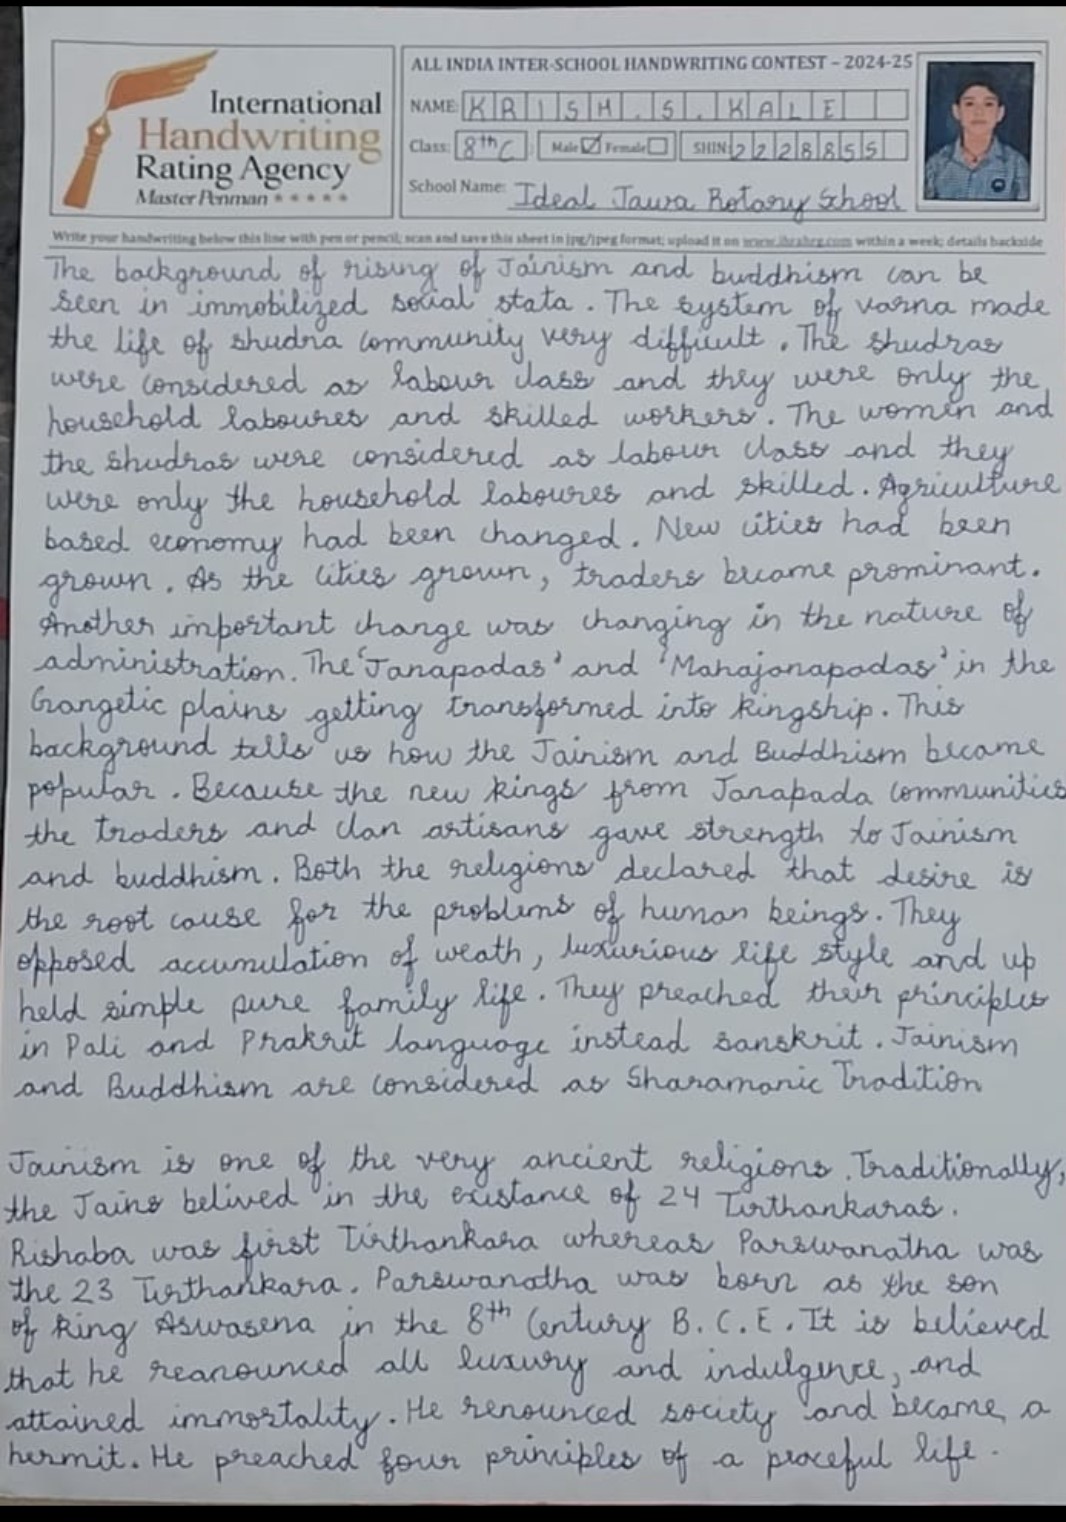 International
Handwriting
Rating Agency
Master Penman
ALL INDIA INTER-SCHOOL HANDWRITING CONTEST – 2024-25
NAME: KRISH.S.KALE
Class: 8th C Male ☑ Female ☐ SHIN: 2228855
School Name: Ideal Jawa Rotary School
Write your handwriting below this line with pen or pencil; scan and save this sheet in jpg/jpeg format; upload it on within a week; details backside
The background of rising of Jainism and buddhism can be
seen in immobilized social stata. The system of varna made
the life of shudra community very difficult. The shudras
were considered as labour class and they were only the
household laboures and skilled workers. The women and
the shudras were considered as labour class and they
were only the household laboures and skilled. Agriculture
based economy had been changed. New cities had been
grown. As the cities grown, traders became prominant.
Another important change was changing in the nature of
administration. The 'Janapadas' and 'Mahajanapadas' in the
Gangetic plains getting transformed into kingship. This
background tells us how the Jainism and Buddhism became
popular. Because the new kings from Janapada communities
the traders and clan artisans gave strength to Jainism
and buddhism. Both the religions declared that desire is
the root cause for the problems of human beings. They
opposed accumulation of weath, luxurious life style and up
held simple pure family life. They preached their principles
in Pali and Prakrit language instead sanskrit. Jainism
and Buddhism are considered as Sharamanic Tradition
Jainism is one of the very ancient religions. Traditionally,
the Jains belived in the existance of 24 Tirthankaras.
Rishaba was first Tirthankara whereas Parswanatha was
the 23 Tirthankara. Parswanatha was born as the son
of king Aswasena in the 8th Century B.C.E. It is believed
that he reanounced all luxury and indulgence, and
attained immortality. He renounced society and became a
hermit. He preached four principles of a peaceful life.